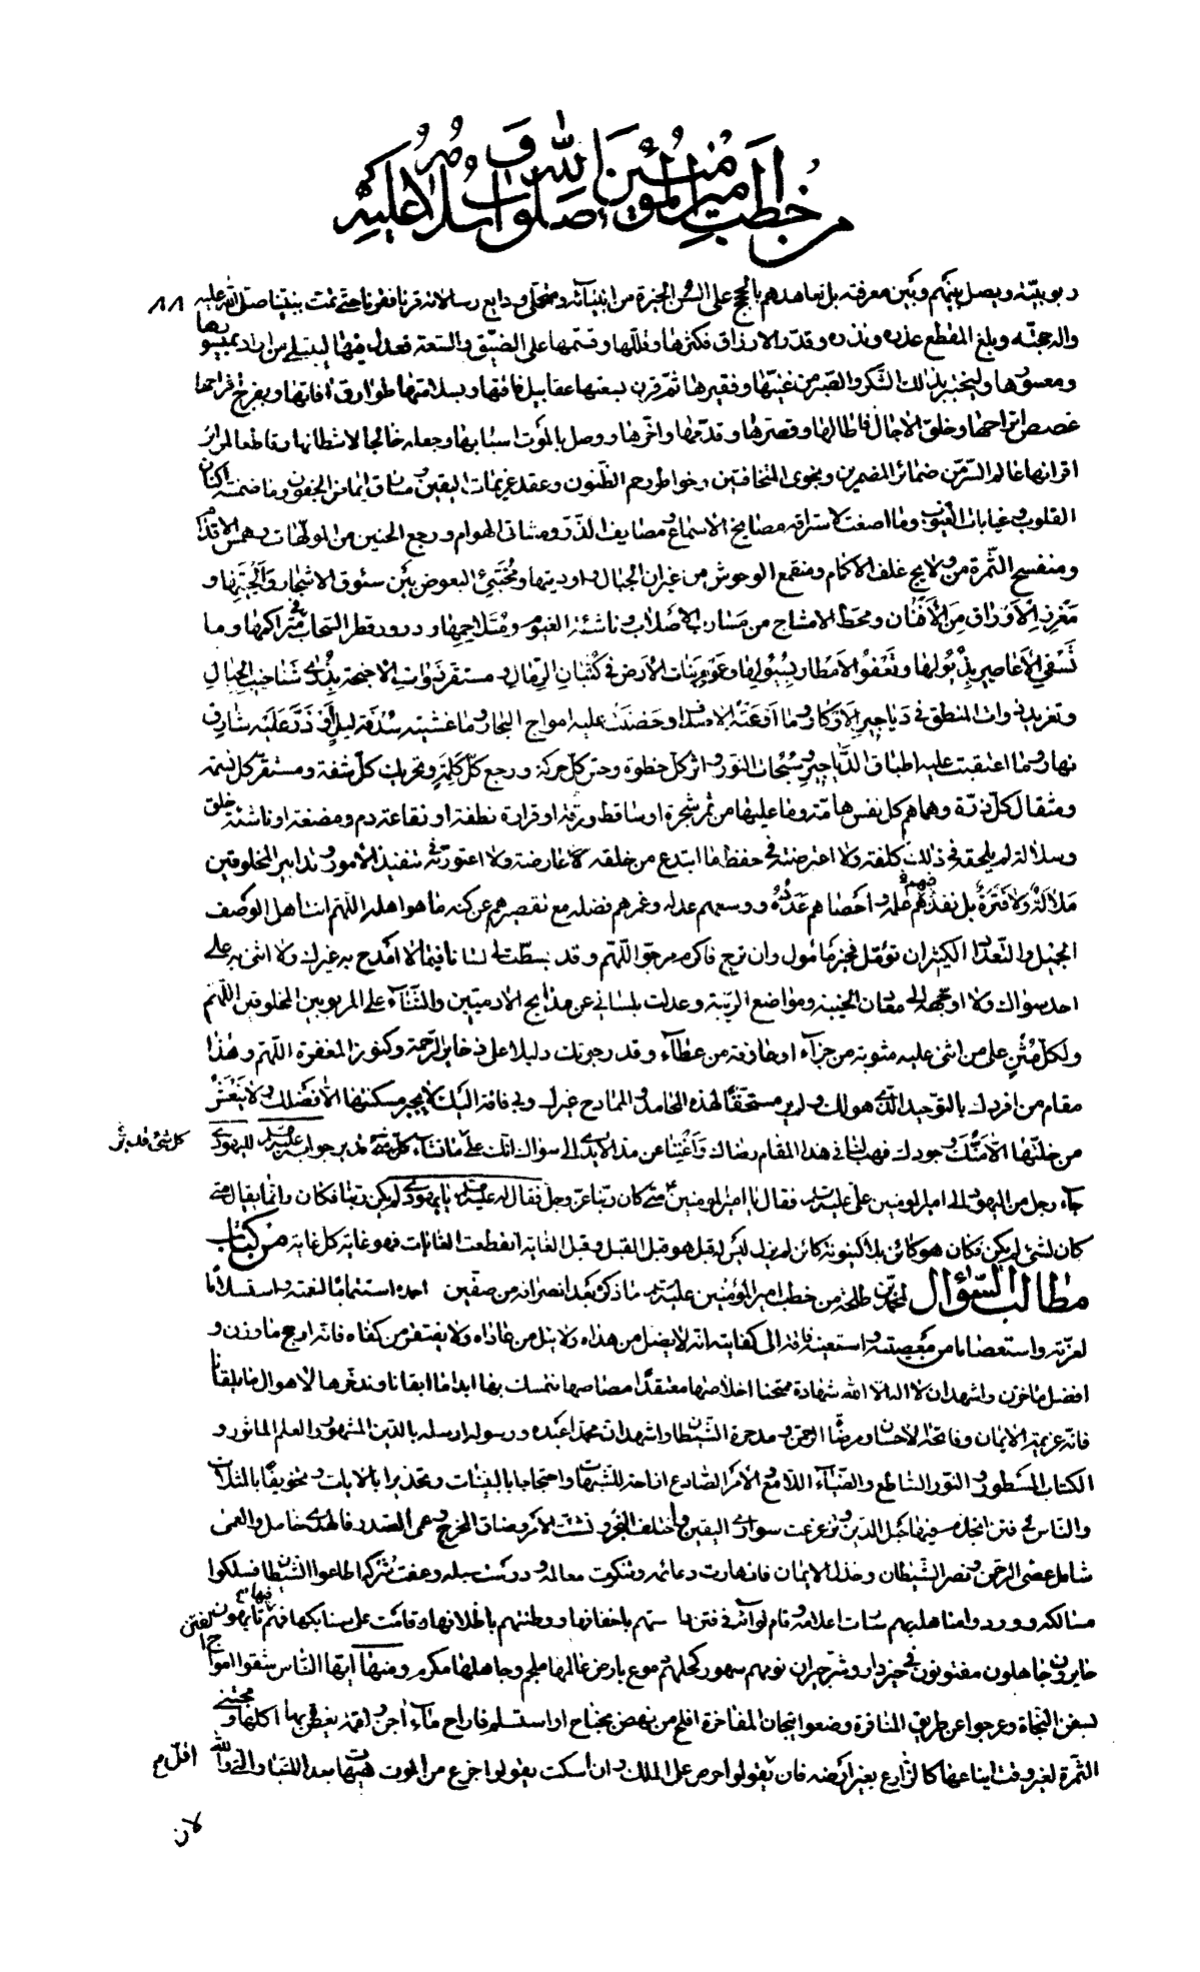 من خطب امير المؤمنين صلوات الله وسلامه عليه
ربوبيته ويصل بينهم وبين معرفته بل تعاهدهم بالحجج على السن الخيرة من انبيائه ومتحملى ودايع رسالاته قرنا فقرنا حتى تمت بنبينا صلى الله عليه ٨٨
واله حجته وبلغ المقطع عذره ونذره وقدر الارزاق فكثرها وقللها وقسمها على الضيق والسعة فعدل فيها ليبتلى من اراد بميسورها
ومعسورها وليختبر بذلك الشكر والصبر من غنيها وفقيرها ثم قرن بسعتها عقابيل فاقتها وبسلامتها طوارق افاتها وبفرج افراحها
غصص اتراحها وخلق الاجال فاطالها وقصرها وقدمها واخرها ووصل بالموت اسبابها وجعله خالجا لاشطانها وقاطعا لمرائر
اقرانها عالم السر من ضمائر المضمرين ونجوى المتخافتين وخواطر رجم الظنون وعقد عزيمات اليقين ومسارق ايماض الجفون وما ضمنته اكنان
القلوب وغيابات الغيوب وما اصغت لاستراقه مصايخ الاسماع ومصايف الذر ومشاتى الهوام ورجع الحنين من المولهات وهمس الاقدام
ومنفسح الثمرة من ولايج غلف الاكمام ومنقمع الوحوش من غيران الجبال واوديتها ومختبئ البعوض بين سوق الاشجار والحيتها و
مغرز الاوراق من الافنان ومحط الامشاج من مسارب الاصلاب وناشئة الغيوم ومتلاحمها ودرور قطر السحاب فى متراكمها وما
تسفى الاعاصير بذيولها وتعفو الامطار بسيولها وعوم بنات الارض فى كثبان الرمال ومستقر ذوات الاجنحة بذرى شناخيب الجبال
وتغريد ذوات المنطق فى دياجير الاوكار وما اوعته الاصداف وحضنت عليه امواج البحار وما غشيته سدفة ليل او ذر عليه شارق
نهار وما اعتقبت عليه اطباق الدياجير وسبحات النور واثر كل خطوة وحس كل حركة ورجع كل كلمة وتحريك كل شفة ومستقر كل نسمة
ومثقال كل ذرة وهماهم كل نفس هامة وما عليها من ثمر شجرة او ساقط ورقة او قرارة نطفة او نقاعة دم ومضغة او ناشئة خلق
وسلالة لم يلحقه فى ذلك كلفة ولا اعترضته فى حفظ ما ابتدع من خلقه عارضة ولا اعتورته فى تنفيذ الامور وتدابير المخلوقين
ملالة ولا فترة بل نفذهم علمه واحصاهم عدده ووسعهم عدله وغمرهم فضله مع تقصيرهم عن كنه ما هو اهله اللهم انت اهل الوصف
الجميل والتعداد الكثير ان تؤمل فخير مامول وان ترج فاكرم مرجو اللهم وقد بسطت لى لسانا فيما لا امدح به غيرك ولا اثنى به على
احد سواك ولا اوجهه الى معادن الخيبة ومواضع الريبة وعدلت بلسانى عن مدايح الادميين والثناء على المربوبين المخلوقين اللهم
ولكل مثن على من اثنى عليه مثوبة من جزاء او عارفة من عطاء وقد رجوتك دليلا على ذخاير الرحمة وكنوز المغفرة اللهم وهذا
مقام من افردك بالتوحيد الذى هو لك ولم ير مستحقا لهذه المحامد والممادح غيرك وبى فاقة اليك لا يجبر مسكنتها الا فضلك ولا ينعش
من خلتها الا منك وجودك فهب لنا فى هذا المقام رضاك واغننا عن مد الايدى الى سواك انك على ما تشاء قدير من جواب له عليه السلم لليهودى
كل شئ قدير
جاء رجل من اليهود الى امير المومنين على عليه السلم فقال يا امير المومنين متى كان ربنا عز وجل فقال له عليه السلم يا يهودى لم يكن ربنا فكان وانما يقال متى
كان لشئ لم يكن فكان هو كائن بلا كينونة كائن لم يزل ليس له قبل هو قبل القبل وقبل الغاية انقطعت الغايات فهو غاية كل غاية من كتاب
مطالب السؤال لمحمد بن طلحة من خطب امير المؤمنين عليه السلم ما ذكره بعد انصرافه من صفين احمده استتماما لنعمته واستسلاما
لعزته واستعصاما من معصيته واستعينه فاقة الى كفايته انه لا يضل من هداه ولا يئل من عاداه ولا يفتقر من كفاه فانه ارجح ما وزن و
افضل ما خزن واشهد ان لا اله الا الله شهادة ممتحنا اخلاصها معتقدا مصاصها نتمسك بها ابدا ما ابقانا وندخرها لاهوال ما يلقانا
فانه عزيمة الايمان وفاتحة الاحسان ومرضاة الرحمن ومدحرة الشيطان واشهد ان محمدا عبده ورسوله ارسله بالدين المشهور والعلم الماثور و
الكتاب المسطور والنور الساطع والضياء اللامع والامر الصادع ازاحة للشبهات واحتجاجا بالبينات وتحذيرا بالايات وتخويفا بالمثلات
والناس فى فتن انجذم فيها حبل الدين وتزعزعت سوارى اليقين واختلف النجر وتشتت الامر وضاق المخرج وعمى المصدر فالهدى خامل والعمى
شامل عصى الرحمن ونصر الشيطان وخذل الايمان فانهارت دعائمه وتنكرت معالمه ودرست سبله وعفت شركه اطاعوا الشيطان فسلكوا
مسالكه ووردوا مناهله بهم سارت اعلامه وقام لواؤه فى فتن داستهم باخفافها ووطئتهم باظلافها وقامت على سنابكها فهم فيها تايهون
حايرون جاهلون مفتونون فى خير دار وشر جيران نومهم سهود وكحلهم دموع بارض عالمها ملجم وجاهلها مكرم ومنها ايها الناس شقوا امواج الفتن
بسفن النجاة وعرجوا عن طريق المنافرة وضعوا تيجان المفاخرة افلح من نهض بجناح او استسلم فاراح ماء اجن ولقمة يغص بها اكلها ومجتنى
الثمرة لغير وقت ايناعها كالزارع بغير ارضه فان اقل يقولوا حرص على الملك وان اسكت يقولوا جزع من الموت هيهات بعد اللتيا والتى والله
لابن